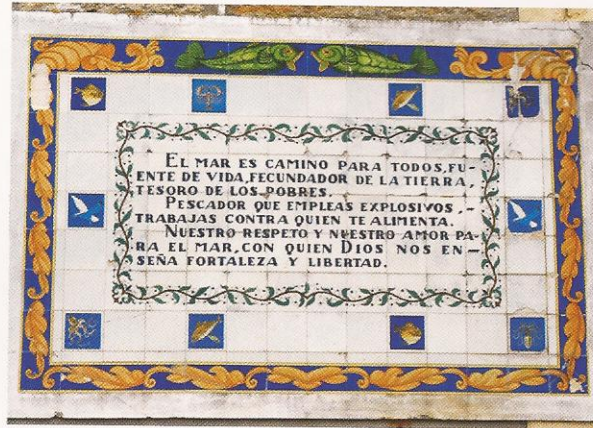 EL MAR ES CAMINO PARA TODOS,FU-
ENTE DE VIDA,FECUNDADOR DE LA TIERRA,
TESORO DE LOS POBRES.
PESCADOR QUE EMPLEAS EXPLOSIVOS,-
TRABAJAS CONTRA QUIEN TE ALIMENTA.
NUESTRO RESPETO Y NUESTRO AMOR PA-
RA EL MAR,CON QUIEN DIOS NOS EN-
SEÑA FORTALEZA Y LIBERTAD.